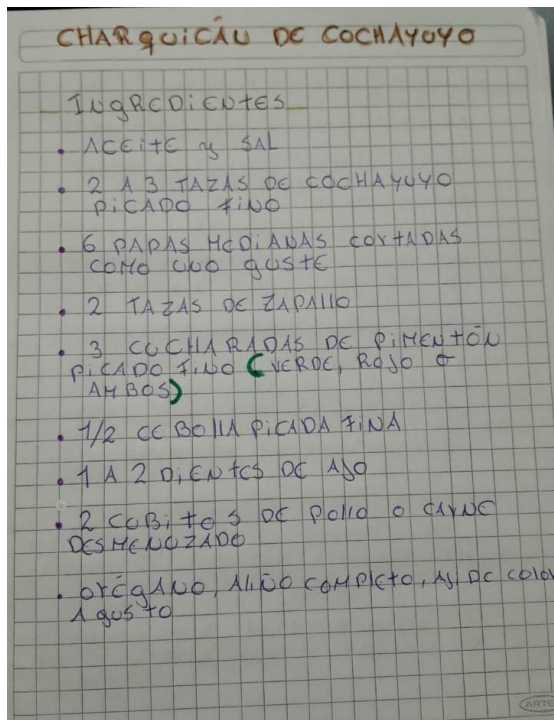 CHARQUICÁU DE COCHAYUYO
INGREDIENTES
• ACEITE y SAL
• 2 A 3 TAZAS DE COCHAYUYO
PICADO FINO
• 6 PAPAS MEDIANAS CORTADAS
COMO UNO GUSTE
• 2 TAZAS DE ZAPALLO
• 3 CUCHARADAS DE PIMENTÓN
PICADO FINO (VERDE, ROJO O
AMBOS)
• 1/2 CEBOLLA PICADA FINA
• 1 A 2 DIENTES DE AJO
• 2 CUBITOS DE POLLO O CARNE
DESMENUZADO
• ORÉGANO, ALIÑO COMPLETO, AJI DE COLOR
A GUSTO
ARTE